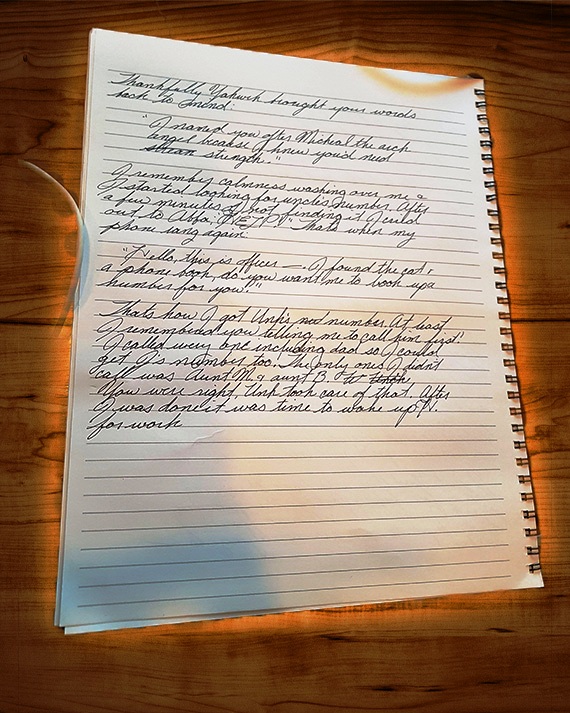 Thankfully Yahweh brought your words
back to mind:
"I named you after Micheal the arch
angel because I knew you'd need
strength."
I remember calmness washing over me &
I started looking for uncles number. After
a few minutes of not finding it I cried
out to Abba "HELP!" Thats when my
phone rang again.
"Hello, this is officer —. I found the cat &
a phone book, do you want me to look up a
number for you?"
Thats how I got Unk's number. At least
I remembered you telling me to call him first!
I called every one including dad so I could
get J's number too. The only ones I didn't
call was Aunt M. & aunt B.
You were right, Unk took care of that. After
I was done it was time to wake up N.
for work